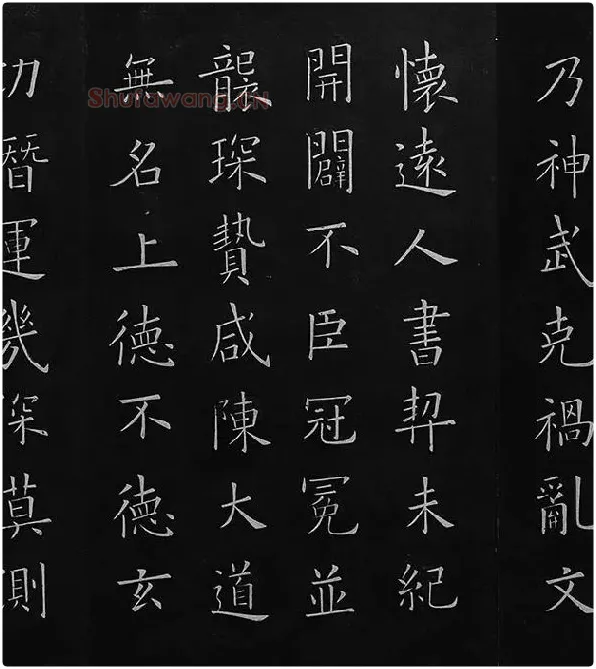 乃神武克禍亂文
懷遠人書契未紀
開闢不臣冠冕並
襲琛贄咸陳大道
無名上德不德玄
功潛運幾深莫測
Shufawang.CN